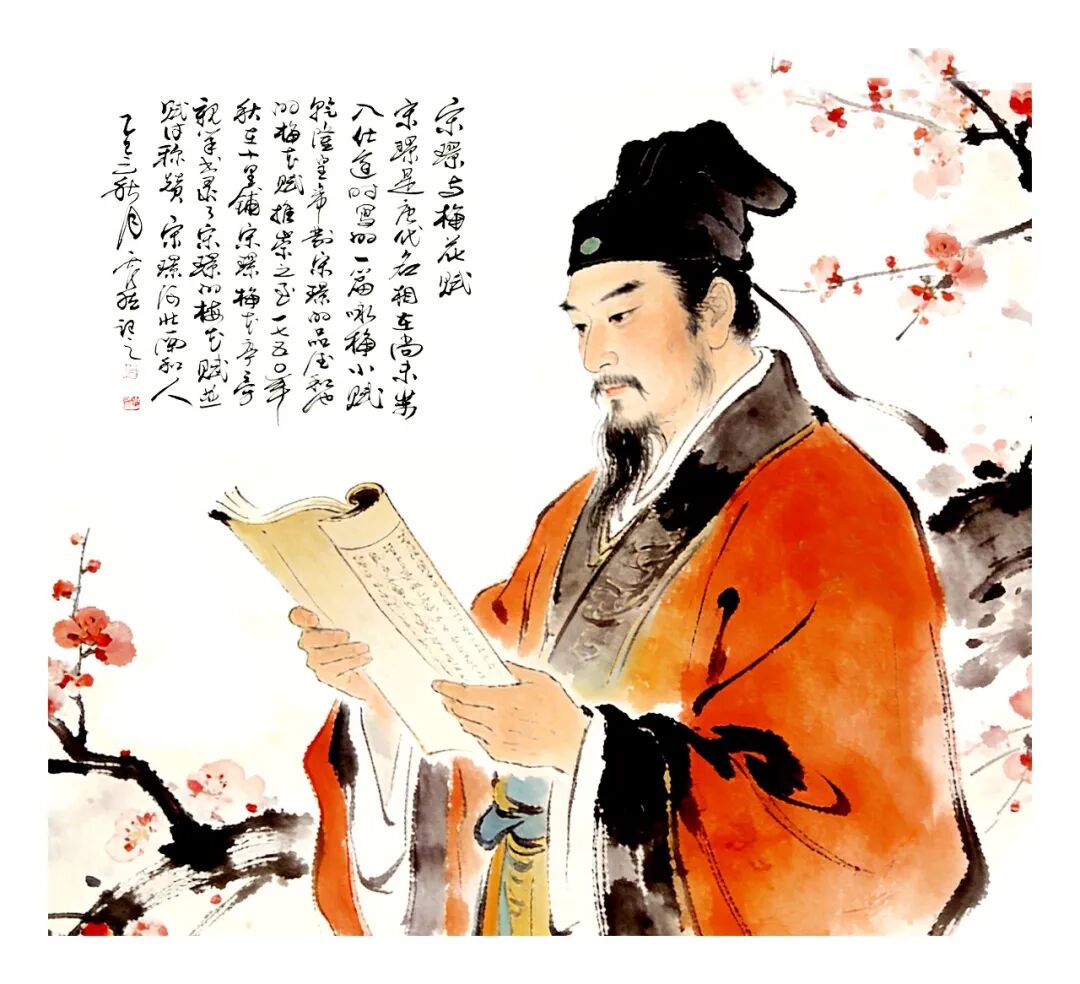 宋璟与梅花赋
宋璟是唐代名相在尚未步
入仕途时写的一篇咏梅小赋
乾隆皇帝对宋璟的品德和他
的梅花赋推崇之至一七五〇年
秋在十里铺宋璟梅花亭
亲笔书录了宋璟的梅花赋并
赋诗称赞宋璟沙北面和人
乙巳秋月 记之